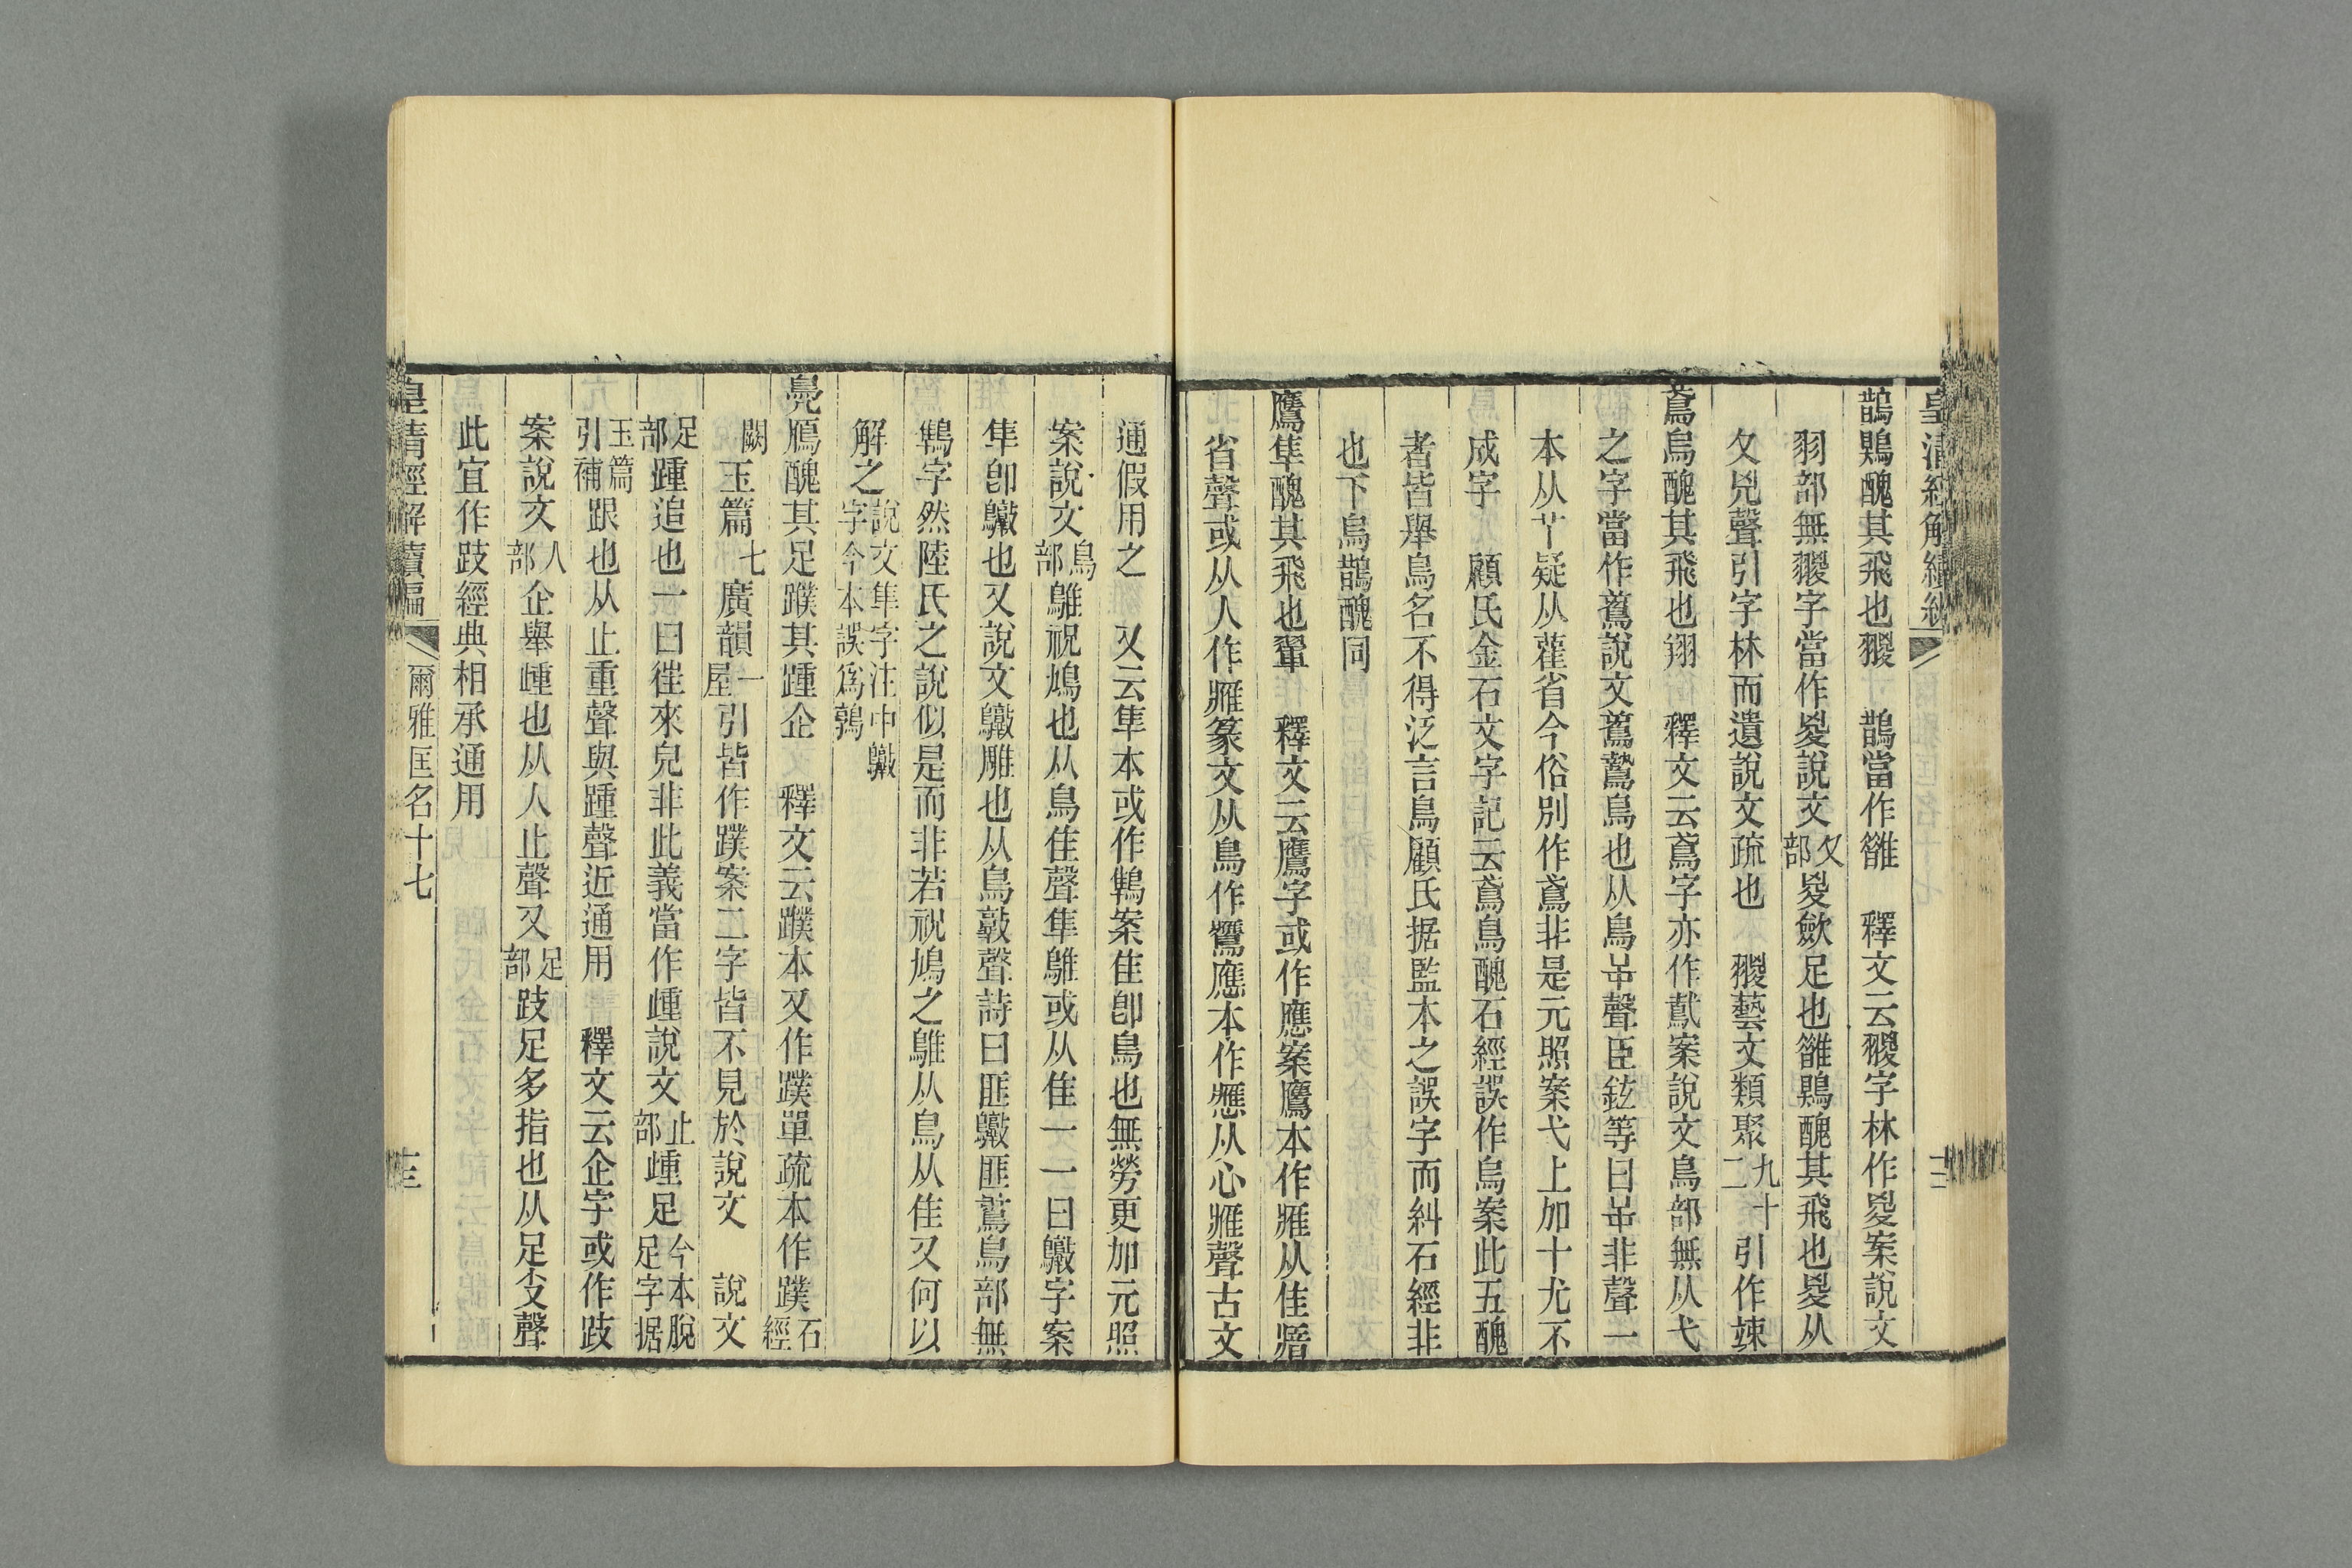 皇清經解續編
鵲鶪醜其飛也翪　鵲當作雒　釋文云翪字林作㚇案說文
羽部無翪字當作㚇說文夊部㚇斂足也雒鶪醜其飛也㚇从
夊兇聲引字林而遺說文疏也　翪藝文類聚九十二引作竦
鳶烏醜其飛也翔　釋文云鳶字亦作䳒案說文鳥部無从弋
之字當作䳒說文䳒鷙鳥也从鳥屰聲臣鉉等曰屰非聲一
本从丫疑从雚省今俗別作鳶非是元照案弋上加十尤不
成字　顧氏金石文字記云鳶鳥醜石經誤作烏案此五醜
者皆舉鳥名不得泛言鳥顧氏据監本之誤字而糾石經非
也下烏鵲醜同
鷹隼醜其飛也翬　釋文云鷹字或作應案鷹本作雁从隹瘖
省聲或从人作雁篆文从鳥作鷹應本作應从心雁聲古文
通假用之　又云隼本或作鵻案隹卽鳥也無勞更加元照
案說文鳥部鵻祝鳩也从鳥隹聲隼鵻或从隹一一曰鷻字案
隼卽鷻也又說文鷻雕也从鳥敦聲詩曰匪鷻匪䳒鳥部無
鵻字然陸氏之說似是而非若祝鳩之鵻从鳥从隹又何以
解之說文隼字注中鷻字今本誤爲鶉
鳧鴈醜其足蹼其踵企　釋文云蹼本又作䑑單疏本作䑑石經
闕玉篇七廣韻一屋引皆作蹼案二字皆不見於說文　說文
足部踵追也一曰往來皃非此義當作歱說文止部歱足今本脫足字据
玉篇引補跟也从止重聲與踵聲近通用　釋文云企字或作跂
案說文人部企舉歱也从人止聲又足部跂足多指也从足支聲
此宜作跂經典相承通用
皇清經解續編　爾雅匡名十七　十三